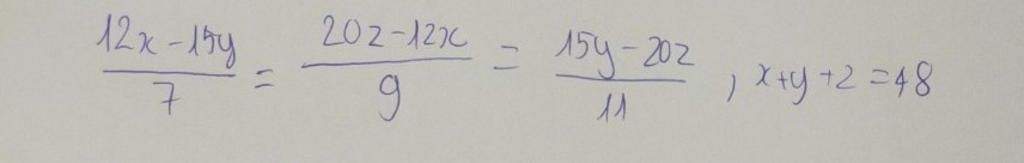 \frac{12x-15y}{7} = \frac{20z-12x}{9} = \frac{15y-20z}{11}, x+y+z=48